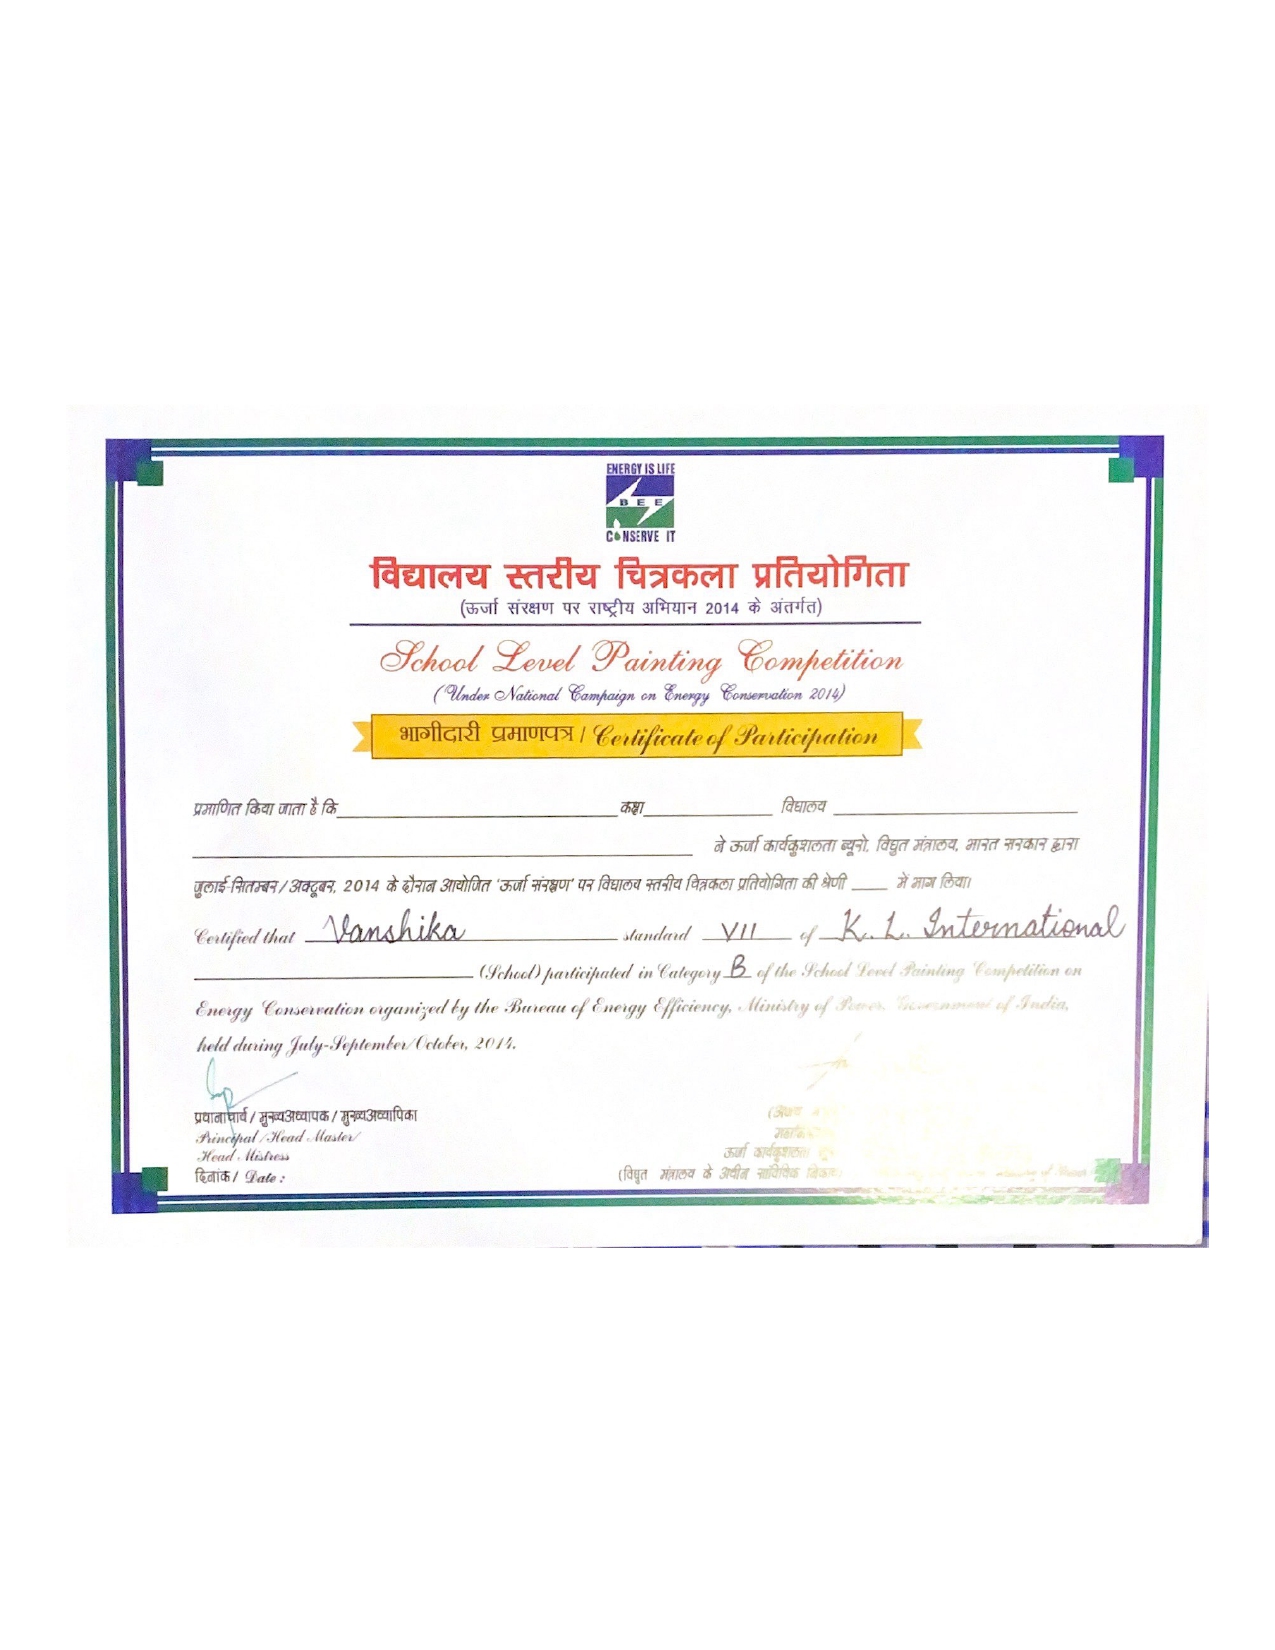 ENERGY IS LIFE
BEE
CONSERVE IT
विद्यालय स्तरीय चित्रकला प्रतियोगिता
(ऊर्जा संरक्षण पर राष्ट्रीय अभियान 2014 के अंतर्गत)
School Level Painting Competition
(Under National Campaign on Energy Conservation 2014)
भागीदारी प्रमाणपत्र / Certificate of Participation
प्रमाणित किया जाता है कि कक्षा विद्यालय
ने ऊर्जा कार्यकुशलता ब्यूरो, विद्युत मंत्रालय, भारत सरकार द्वारा
जुलाई-सितम्बर / अक्टूबर, 2014 के दौरान आयोजित 'ऊर्जा संरक्षण' पर विद्यालय स्तरीय चित्रकला प्रतियोगिता की श्रेणी में भाग लिया।
Certified that Vanshika standard VII of K. L. International
(School) participated in Category B of the School Level Painting Competition on
Energy Conservation organized by the Bureau of Energy Efficiency, Ministry of Power, Government of India,
held during July-September/October, 2014.
प्रधानाचार्य / मुख्यअध्यापक / मुख्यअध्यापिका
Principal/Head Master/
Head Mistress
दिनांक / Date :
ऊर्जा कार्यकुशलता
(विद्युत मंत्रालय के अधीन सांविधिक निकाय)